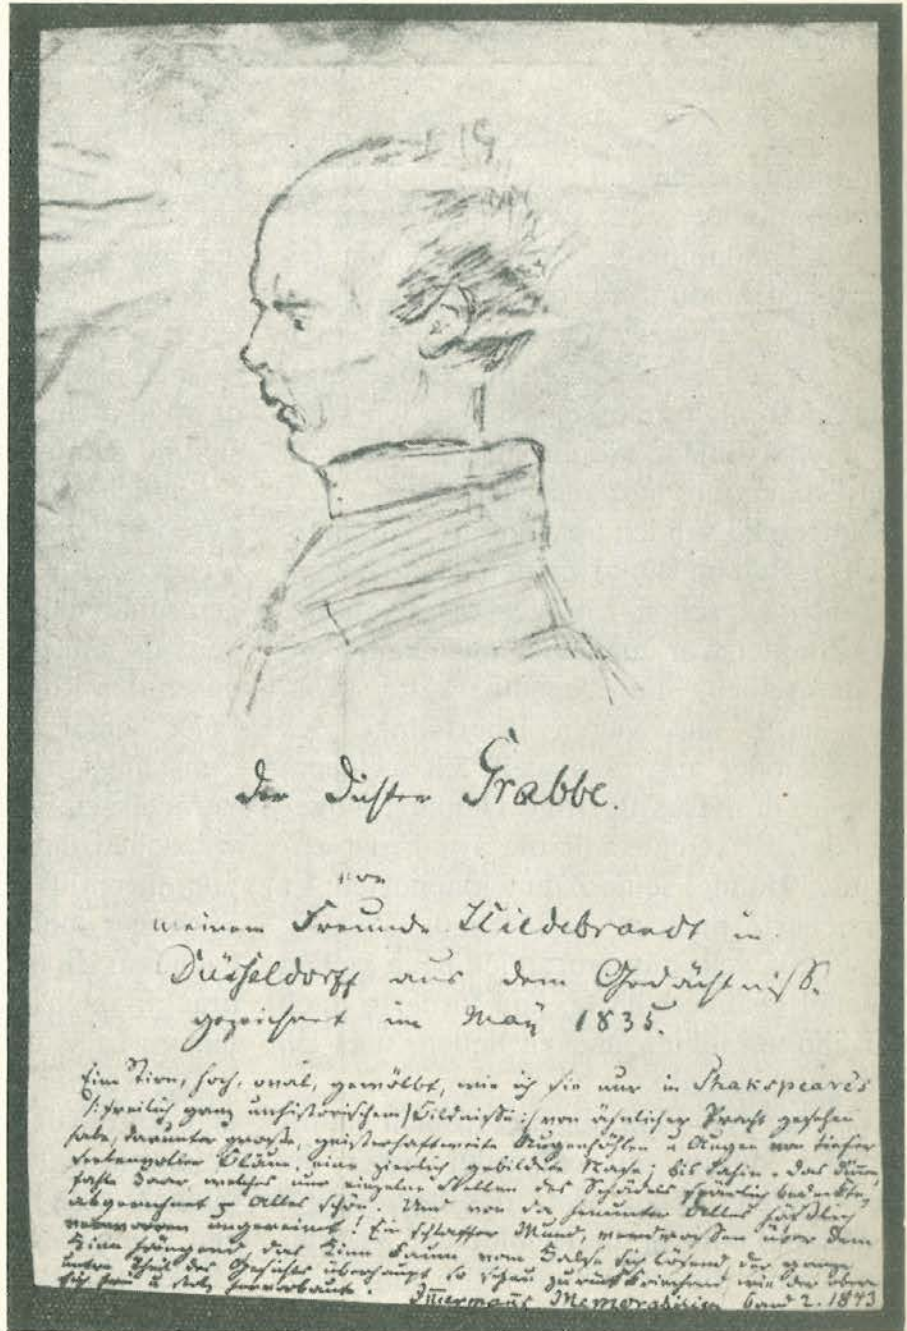 Der Dichter Grabbe.
von
meinem Freunde Hildebrandt in
Düsseldorff aus dem Gedächtniss.
gezeichnet im May 1835.
Eine Stirn, hoch, oval, gewölbt, wie ich sie nur in Shakspeare's
/: freilich ganz unhistorischem) Bildnisse :/ von ähnlicher Pracht gesehen
habe, darunter große, geisterhaftweite Augenhöhlen u Augen von tiefer
seelenvoller Bläue, eine zierlich gebildete Nase; bis dahin – das dünne,
fahle Haar, welches nur einzelne Stellen des Schädels spärlich bedeckte,
abgerechnet – Alles schön. Und von da hinunter Alles häßlich
verworren ungereimt! Ein schlaffer Mund, verdrossen über dem
Kinn hängend, das Kinn kaum vom Halse sich lösend, der ganze
untere Theil des Gesichts überhaupt so scheu zurückkriechend, wie der obere
sich frei u stolz hervorbaute.
Immermanns Memorabilien Band 2. 1843